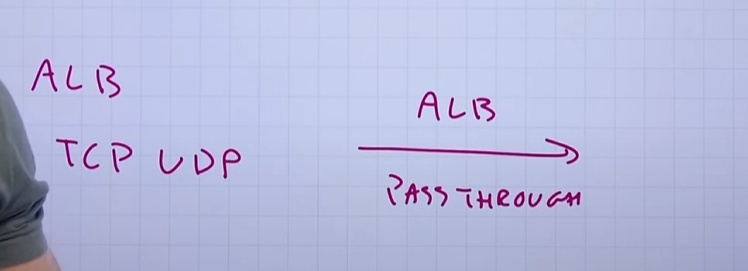 ALB
TCP UDP
ALB
PASS THROUGH